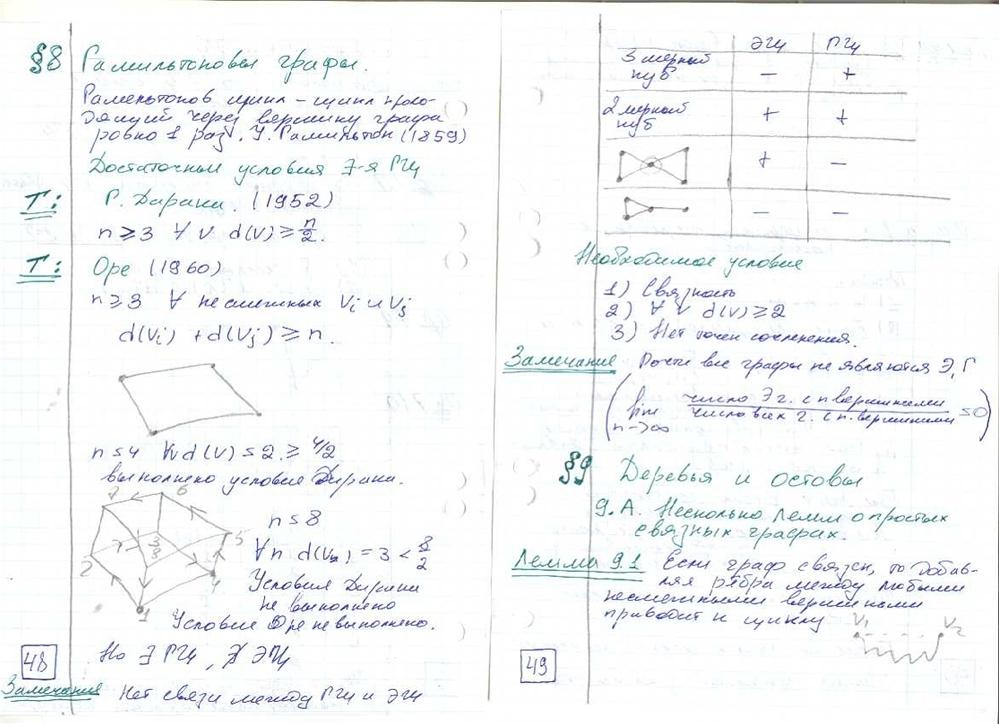 §8 Гамильтоновы графы.
Гамельтонов цикл - цикл прохо-
дящий через вершину графа
ровно 1 раз. У. Гамильтон (1859)
Достаточные условия ∃-я ГЦ
Т: Г. Дирака. (1952)
n ≥ 3 ∀ v d(v) ≥ n/2.
Т: Оре (1960)
n ≥ 3 ∀ несмежных Vi и Vj
d(Vi) + d(Vj) ≥ n.
n = 4 ∀v d(v) = 2 ≥ 4/2
выполнено условие Дирака.
7 6
3
8
5
2
4
1
n = 8
d(V) = 3 < 8/2
Условия Дирака
не выполнено
Условие Оре не выполнено.
Но ∃ ГЦ, ∄ ЭЦ
48
Замечание Нет связи между ГЦ и ЭЦ
ЭГЦ ГГЦ
3 мерный
куб - +
2 мерный
куб + +
+ -
- -
Необходимое условие
1) Связность
2) ∀ V d(V) ≥ 2
3) Нет точек сочленения.
Замечание Почти все графы не являются Э, Г
( lim число Э г. с n вершинами / число всех г. с n вершинами = 0 )
n→∞
§9 Деревья и остовы
9.А. Несколько лемм о простых
связных графах.
Лемма 9.1 Если граф связен, то добав-
ляя рёбра между любыми
несмежными вершинами
приводит к циклу
V1 V2
49